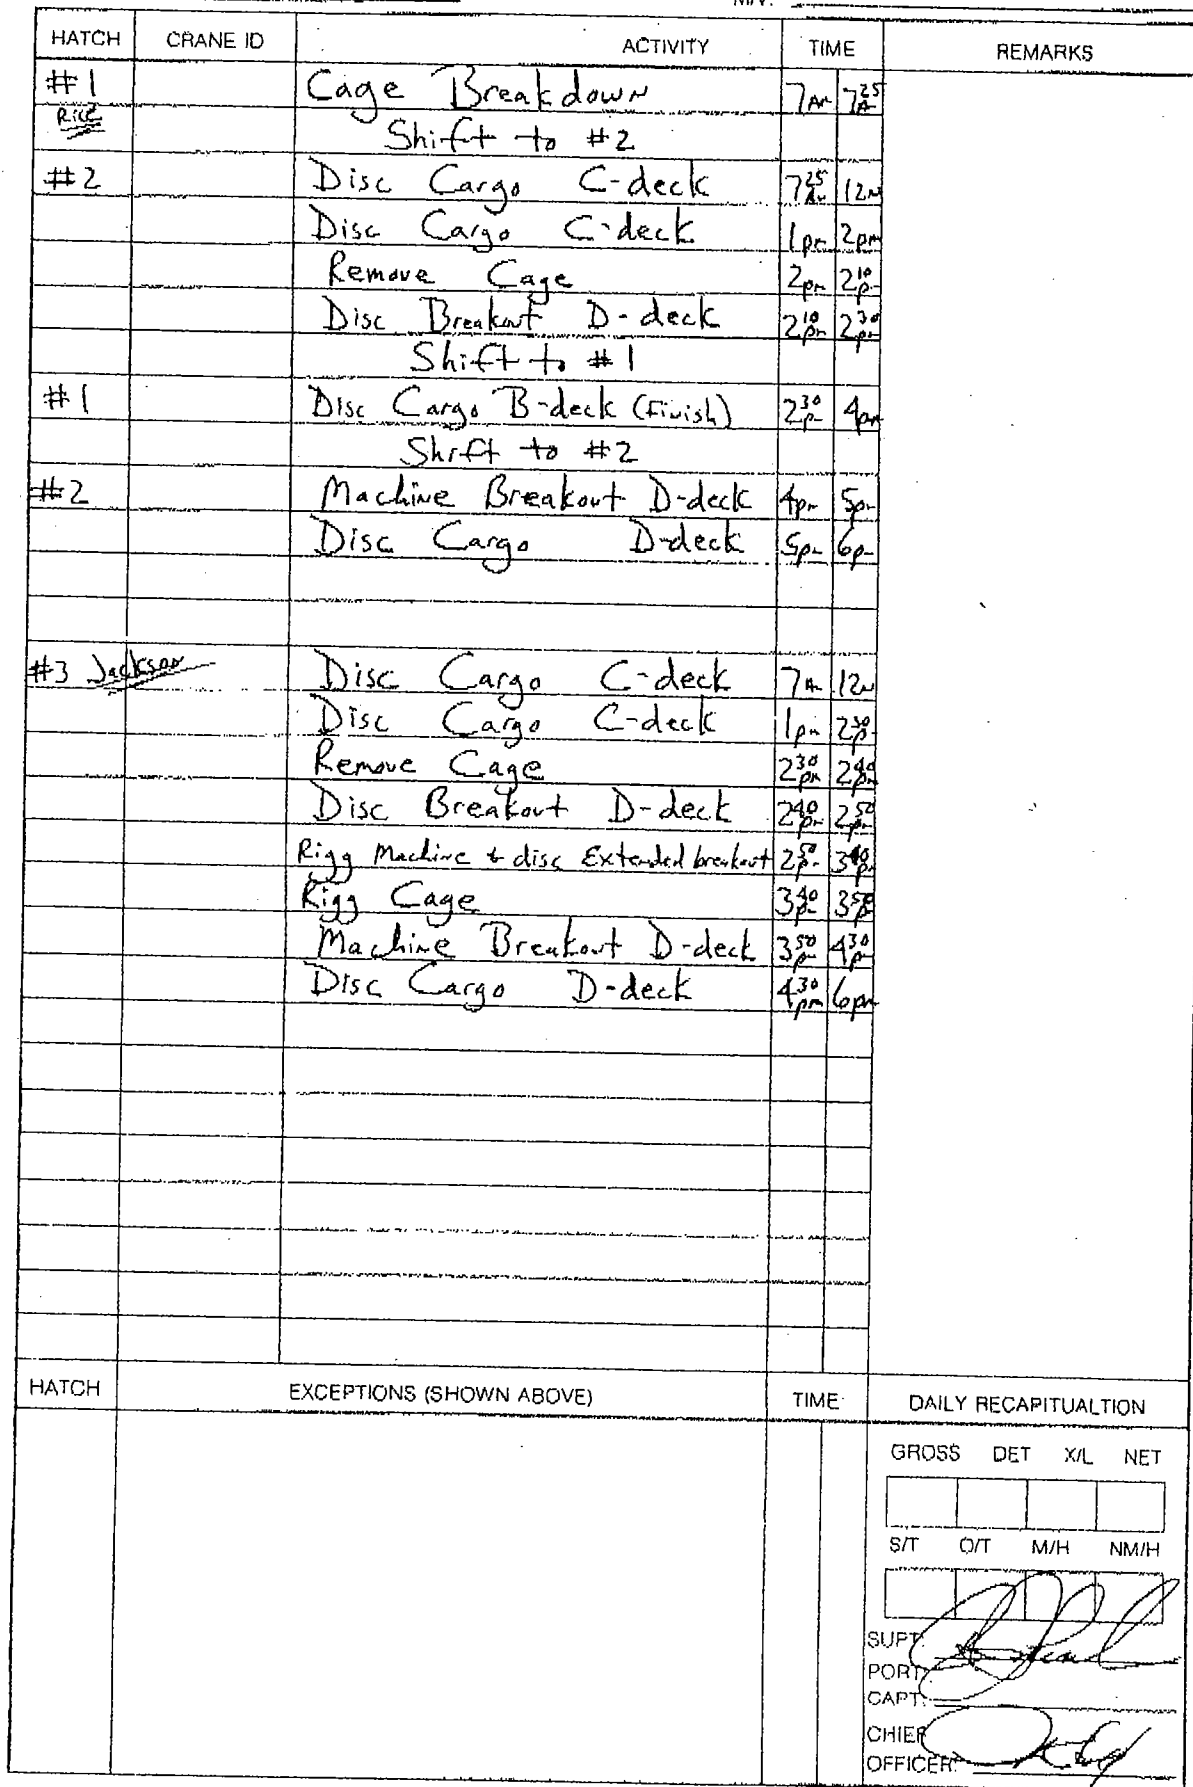 M/V:
HATCH CRANE ID ACTIVITY TIME REMARKS
#1 Cage Breakdown 7AM 7 25 A
Rice Shift to #2
#2 Disc Cargo C-deck 7 25 AM 12N
Disc Cargo C-deck 1pm 2pm
Remove Cage 2pm 2 10 p
Disc Breakout D-deck 2 10 pm 2 30 pm
Shift to #1
#1 Disc Cargo B-deck (Finish) 2 30 p 4pm
Shift to #2
#2 Machine Breakout D-deck 4pm 5pm
Disc Cargo D-deck 5pm 6pm
#3 Jackson Disc Cargo C-deck 7A 12N
Disc Cargo C-deck 1pm 2 30 p
Remove Cage 2 30 pm 2 40 pm
Disc Breakout D-deck 2 40 pm 2 50 pm
Rigg Machine & disc Extended breakout 2 50 p 3 40 pm
Rigg Cage 3 40 p 3 50 p
Machine Breakout D-deck 3 50 p 4 30 pm
Disc Cargo D-deck 4 30 pm 6pm
HATCH EXCEPTIONS (SHOWN ABOVE) TIME DAILY RECAPITUALTION
GROSS DET X/L NET
S/T O/T M/H NM/H
SUPT.
PORT
CAPT:
CHIEF
OFFICER: